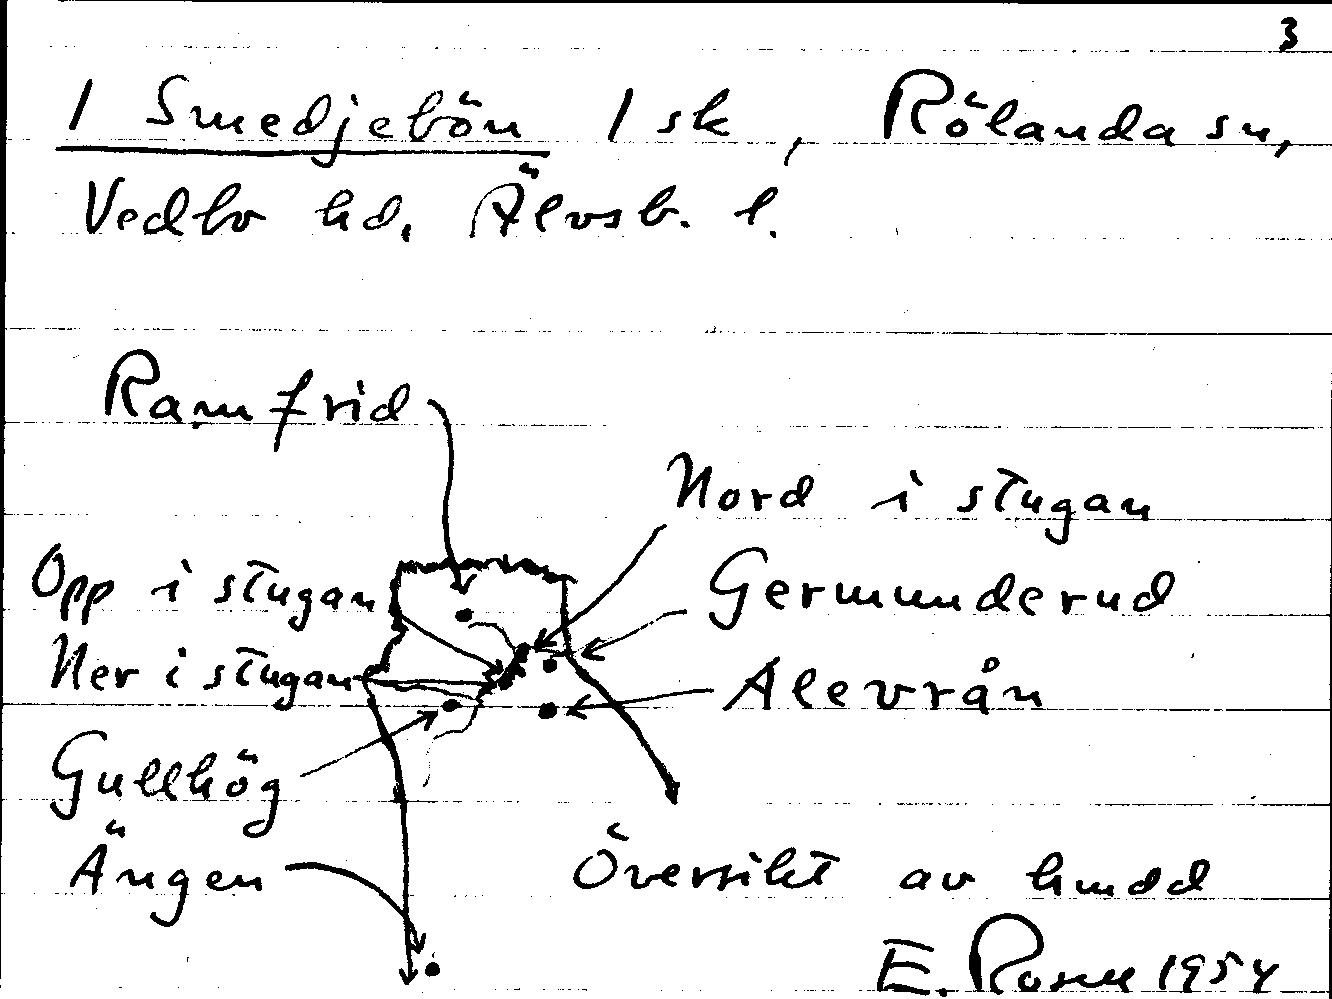 3
1 Smedjebön 1 sk, Rölanda sn,
Vedbo hd. Älvsb. l.
Ramfrid
Nord i stugan
Opp i stugan
Germunderud
Ner i stugan
Alevrån
Gullhög
Ängen
Översikt av hmdd
E. Rosell 1954